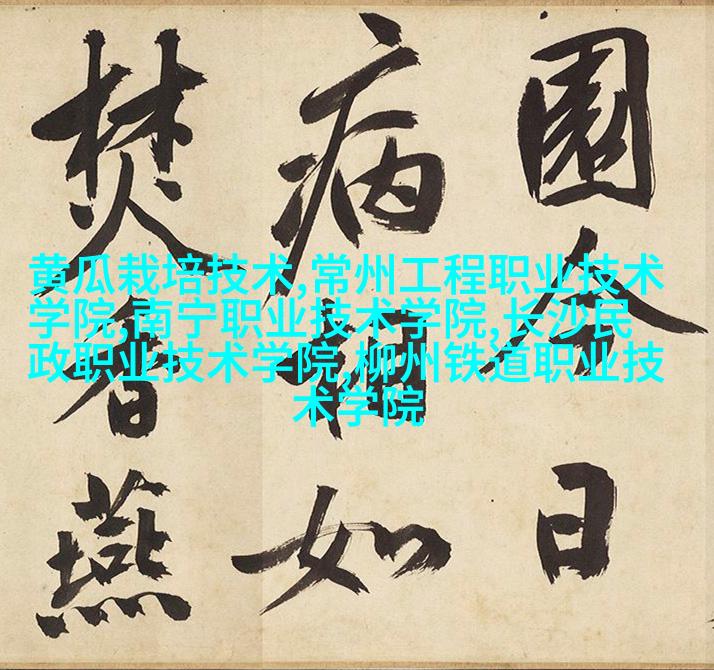 園今日
病相如
焚香燕
黄瓜栽培技术,常州工程职业技术
学院,南宁职业技术学院,长沙民
政职业技术学院,柳州铁道职业技
术学院